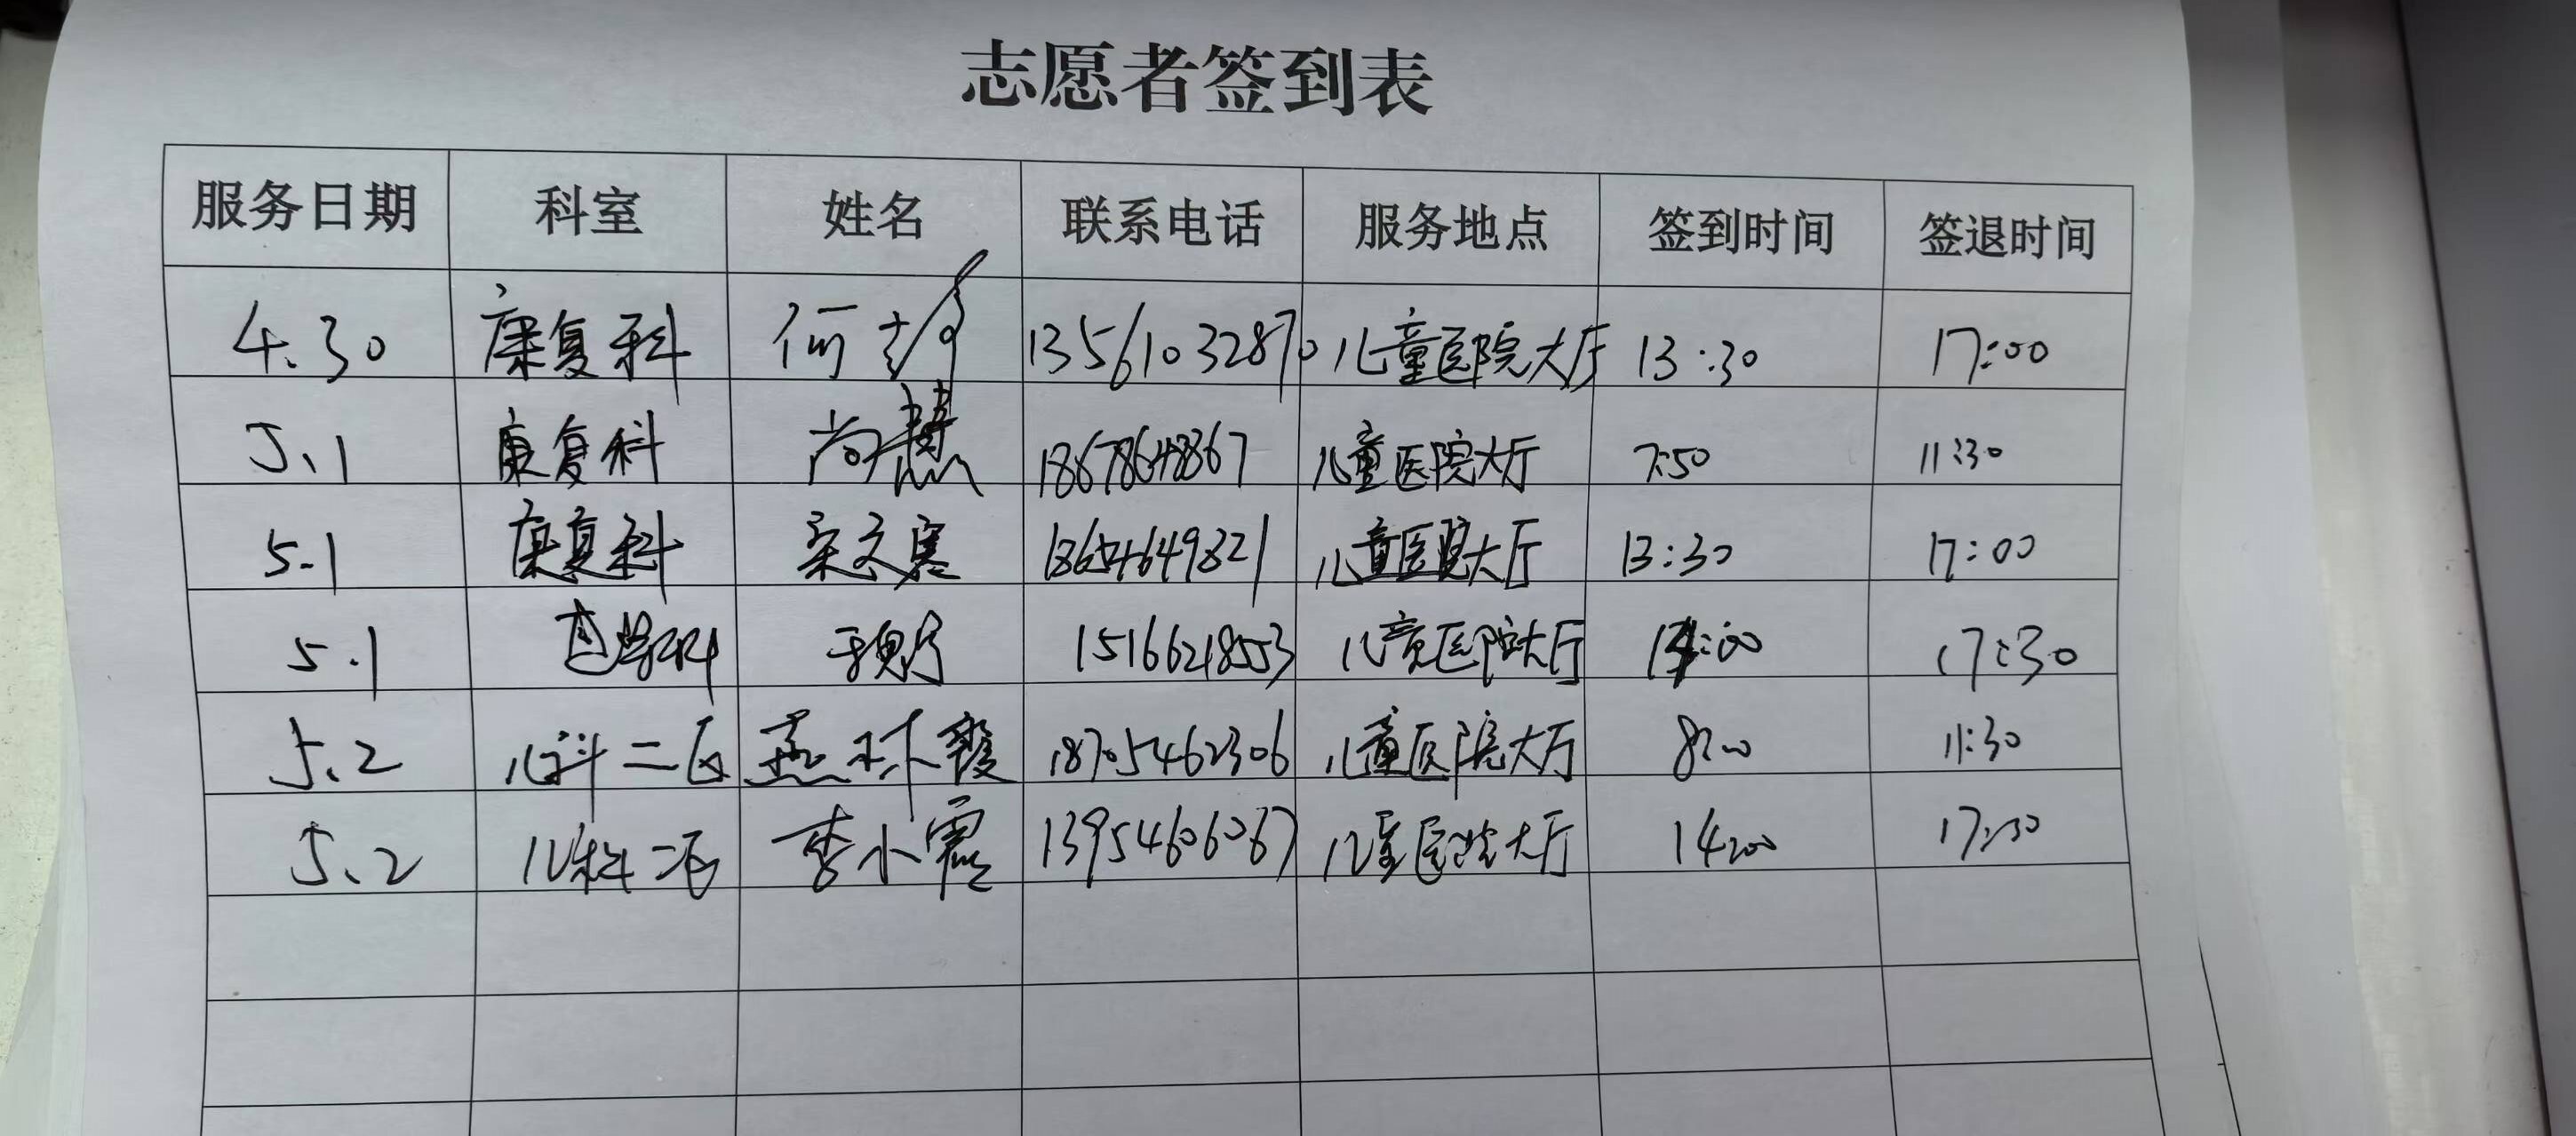 志愿者签到表
服务日期 科室 姓名 联系电话 服务地点 签到时间 签退时间
4.30 康复科 何 13561032870 儿童医院大厅 13:30 17:00
5.1 康复科 尚慧 18678648867 儿童医院大厅 7:50 11:30
5.1 康复科 儿童医院大厅 13:30 17:00
5.1 15166218553 儿童医院大厅 17:30
5.2 儿科二区 18705462306 儿童医院大厅 8:00 11:30
5.2 儿科二区 李小霞 13954606067 儿童医院大厅 14:00 17:30